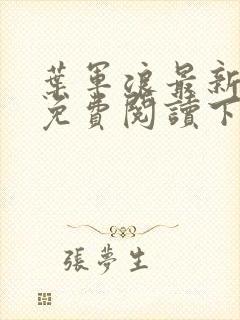 葉軍浪最新
免費閱讀下
張夢生